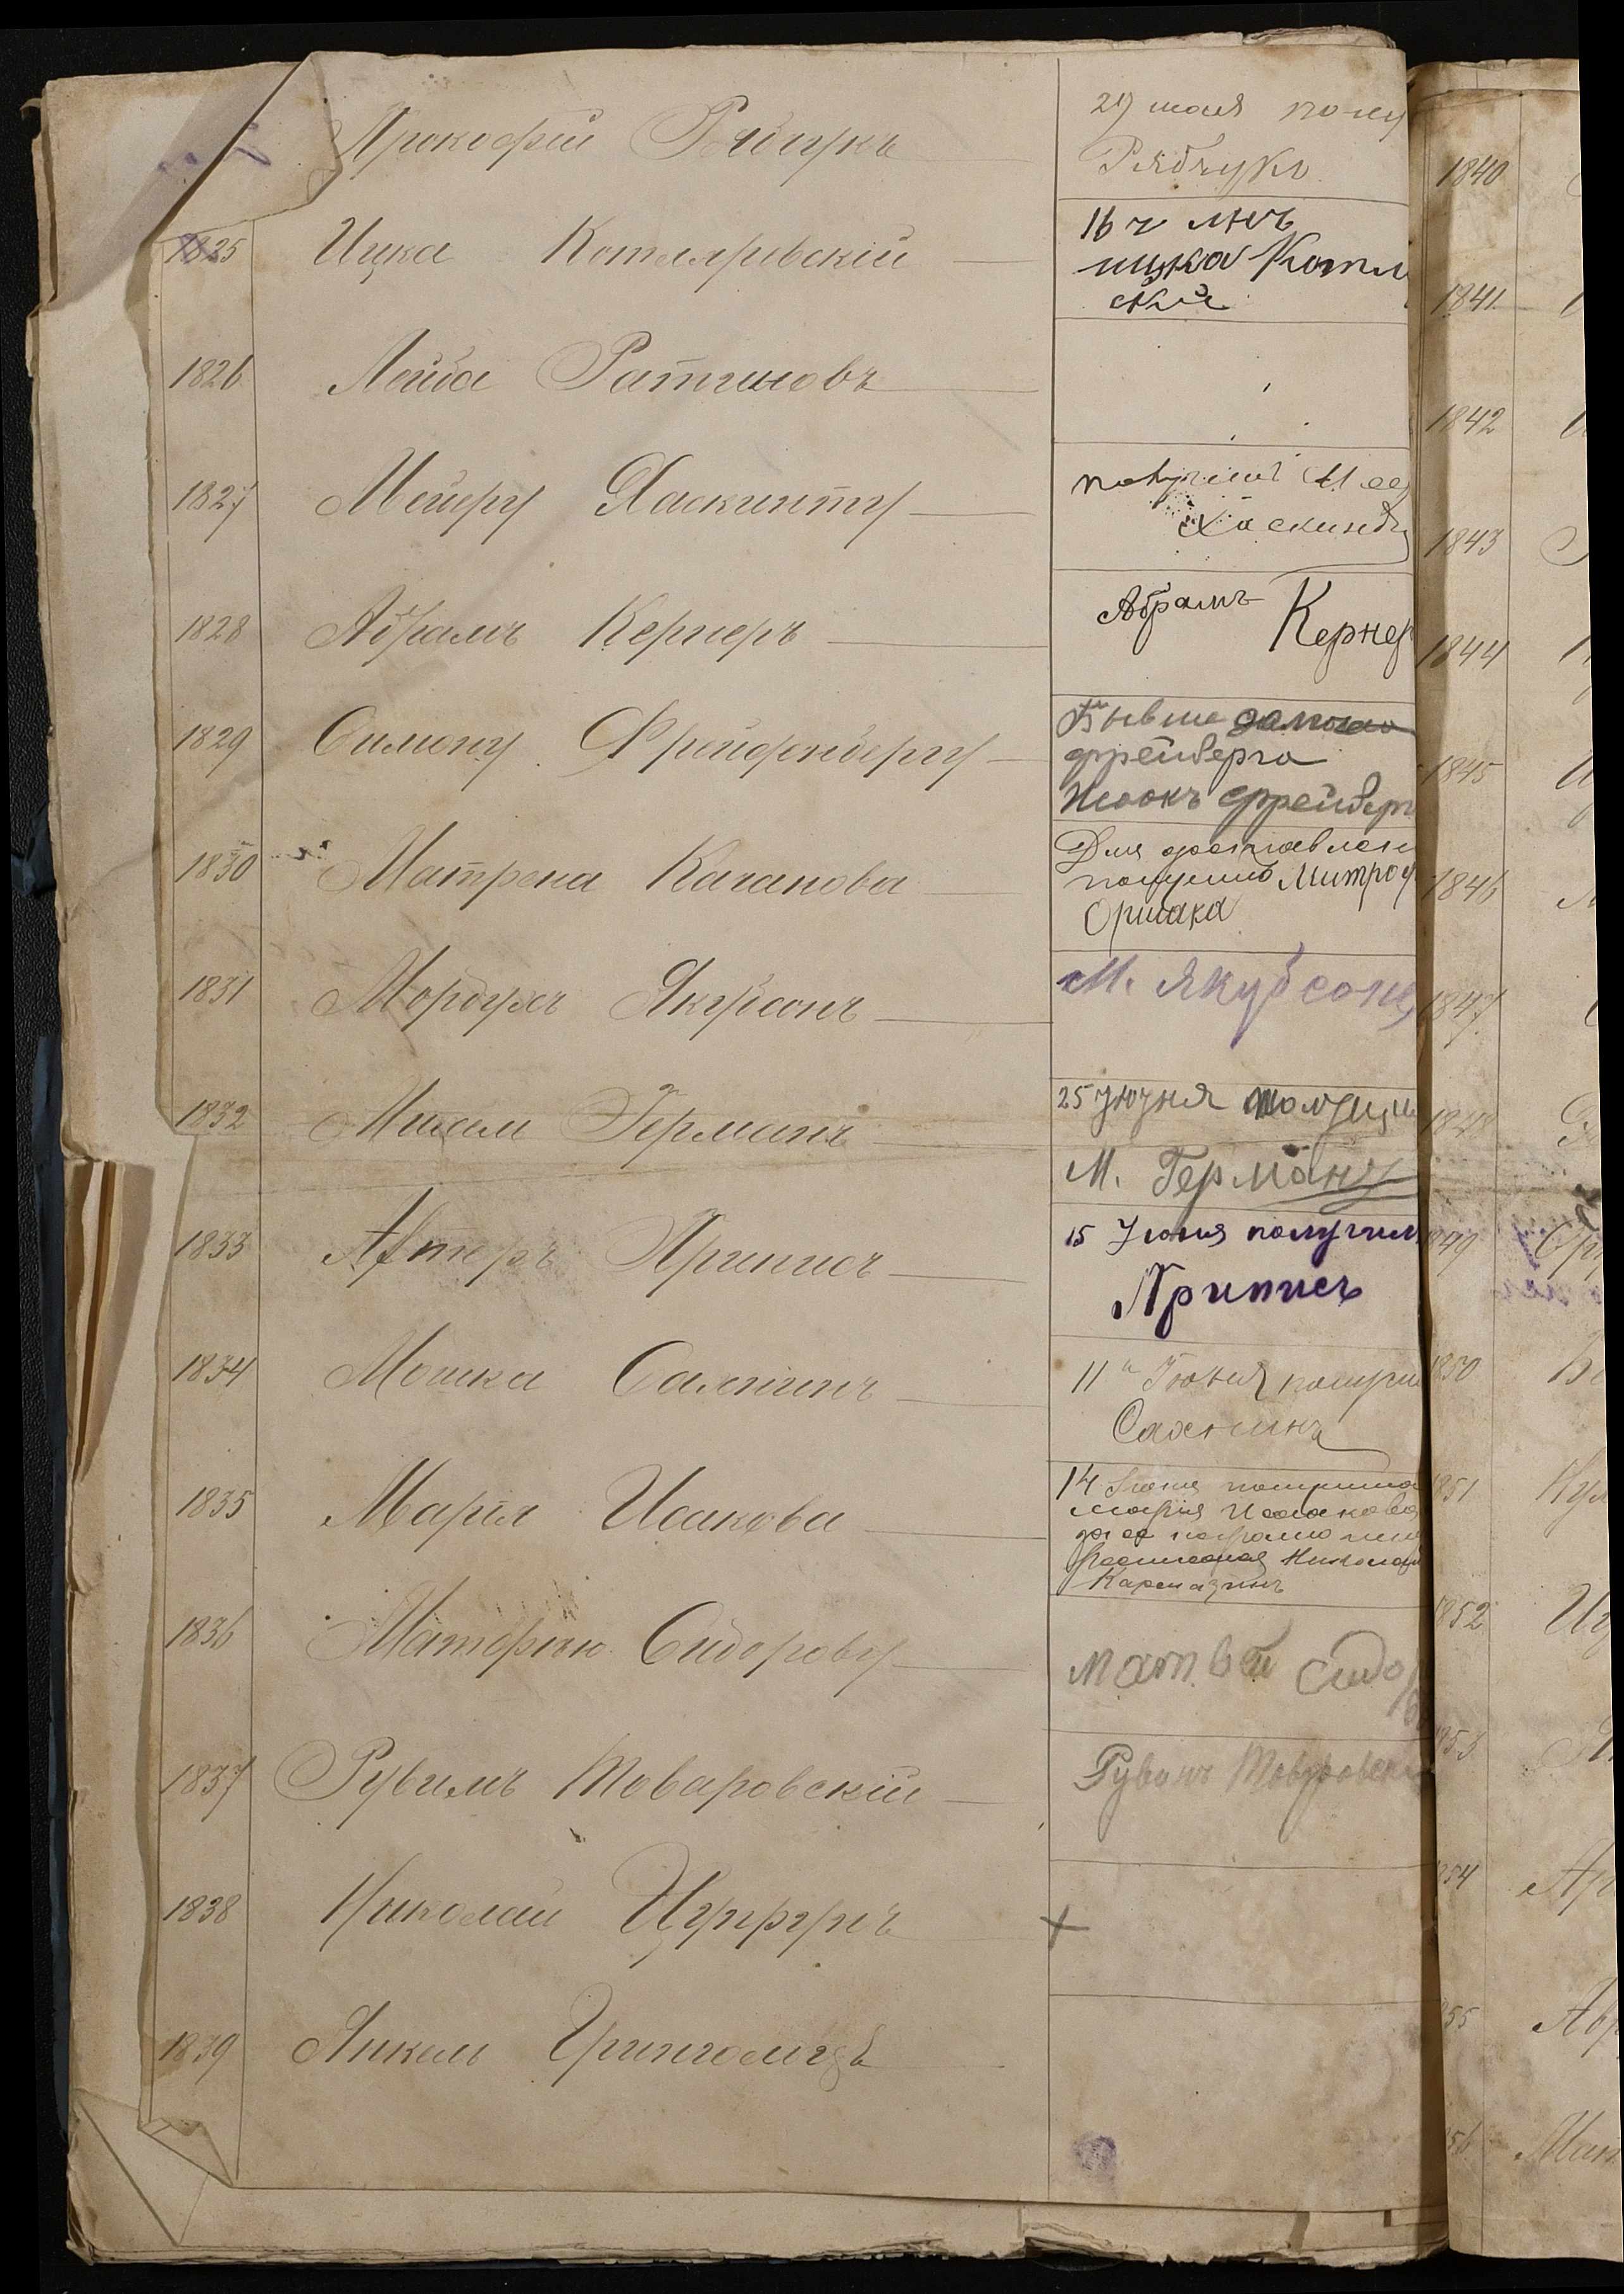 Прокофій Рябчукъ
29 мая полу
Рябчукъ
1825 Ицка Котляревскій
16 г
ицка Котл
скій
1826 Лейба Ратиновъ
1827 Мейеру Хаскинту
получилъ
Хаскинд
1828 Абрамъ Кернеръ
Абрамъ Кернер
1829 Симону Фрейденбергу
фрейберга
фрейберг
1830 Матрена Каганова
Для доставлен
получилъ Митроф
Оршака
1831 Мордухъ Якубсонъ
М. Якубсон
1832 Михаил Германъ
25 Июня получи
М. Германъ
1833 Артеръ Припись
15 Июня получил
Приписъ
1834 Мошка Салнинъ
11 Іюня получил
Салнинъ
1835 Марія Исакова
14 Іюня получила
Мария Исакова
Росписался Николай
Кармазинъ
1836 Матофею Сидорову
Матвей Сидор
1837 Рувимъ Товаровскій
Рувимъ Товаровски
1838 Николай
1839 Янкель Грингольцъ
1840
1841
1842
1843
1844
1845
1846
1847
1848
849
850
851
852
853
854
855
856